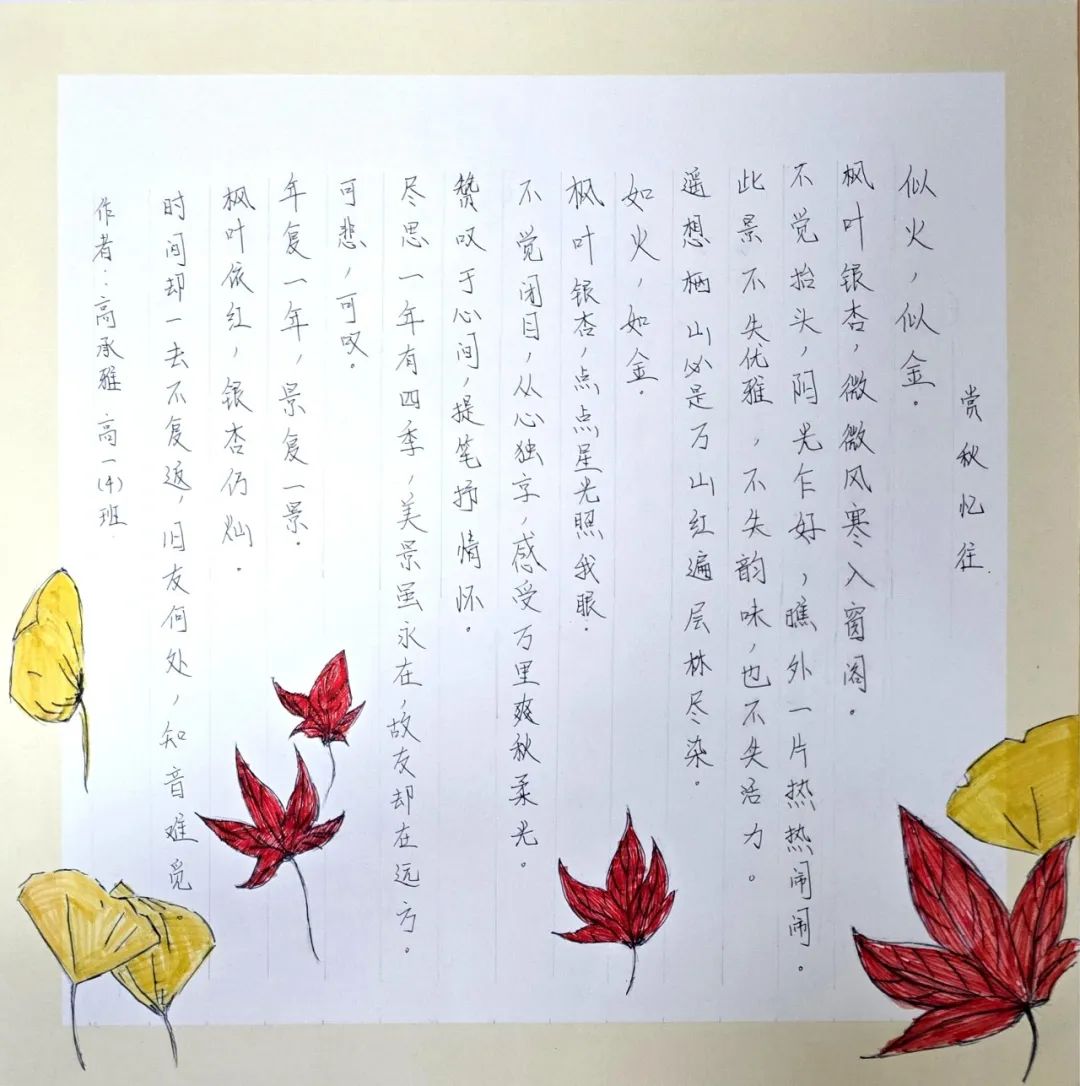 赏秋忆往
似火，似金。
枫叶银杏，微微风寒入窗阁。
不觉抬头，阳光乍好，瞧外一片热热闹闹。
此景不失优雅，不失韵味，也不失活力。
遥想栖山必是万山红遍层林尽染。
如火，如金。
枫叶银杏，点点星光照我眼。
不觉闭目，从心独享，感受万里爽秋柔光。
赞叹于心间，提笔抒情怀。
尽思一年有四季，美景虽永在，故友却在远方。
可悲，可叹。
年复一年，景复一景。
枫叶依红，银杏仍灿。
时间却一去不复返，旧友何处，知音难觅。
作者：高承雅 高一(4)班